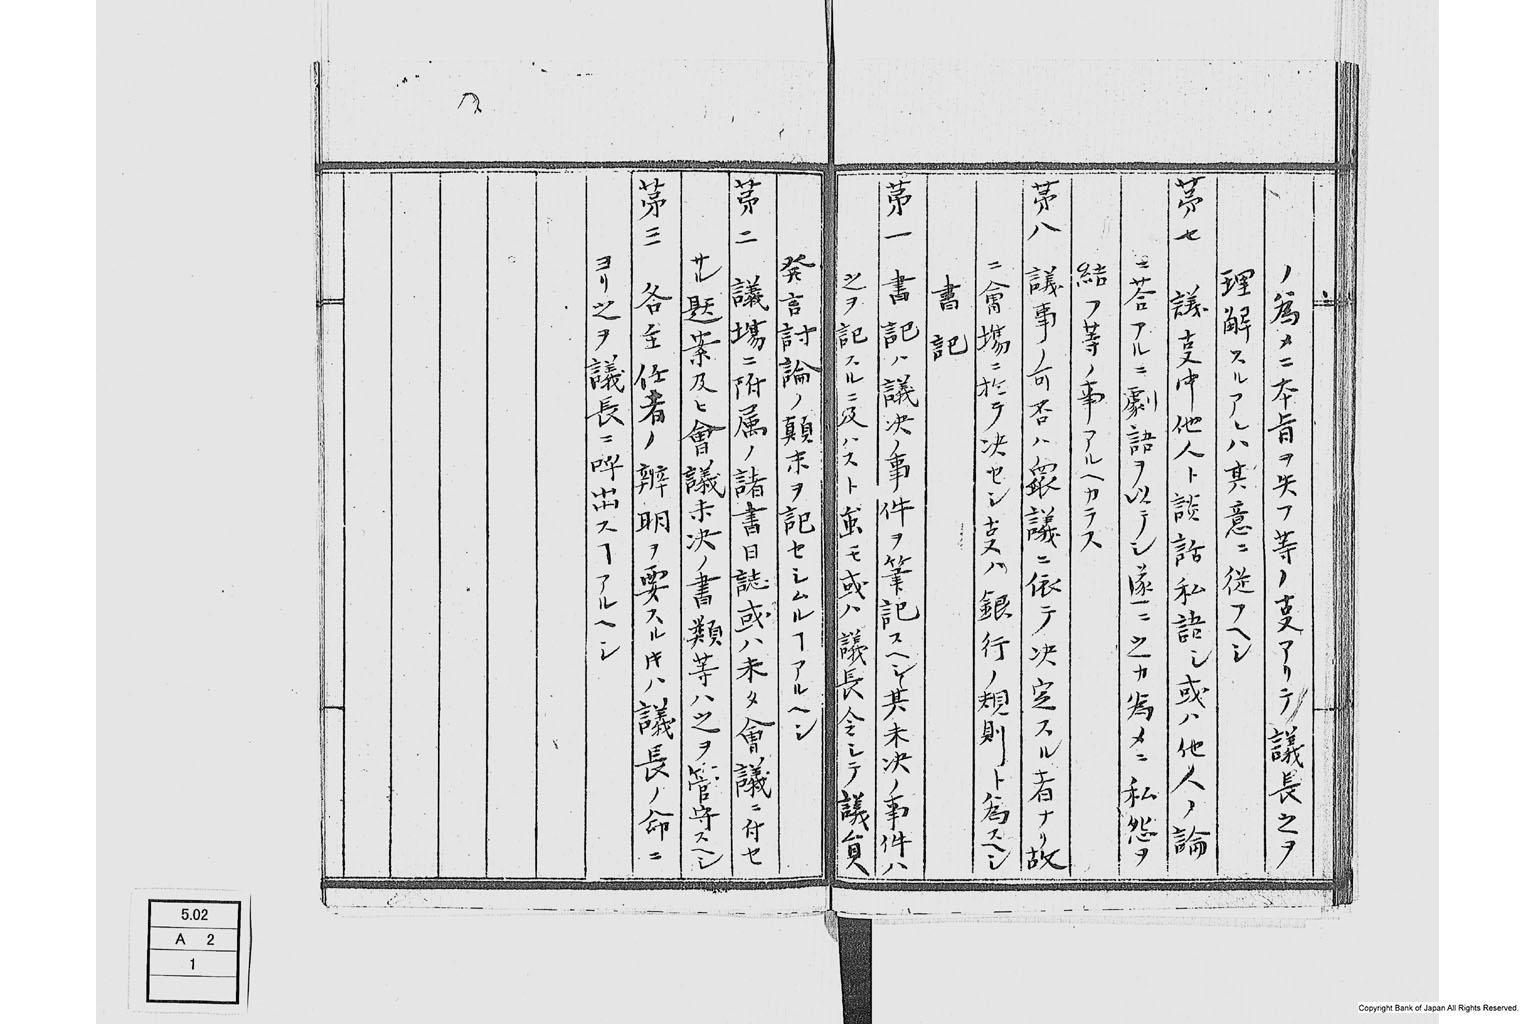 ノ為メニ本旨ヲ失フ等ノ事アリテ議長之ヲ
理解スルアレハ其意ニ従フヘシ
第七 議事中他人ト談話私語シ或ハ他人ノ論
ニ答アルニ劇語ヲ以テシ遂ニ之カ為メニ私怨ヲ
結フ等ノ事アルヘカラス
第八 議事ノ可否ハ衆議ニ依テ决定スル者ナリ故
ニ會場ニ於テ决セシ事ハ銀行ノ規則ト為スヘシ
書記
第一 書記ハ議决ノ事件ヲ筆記スヘシ其未决ノ事件ハ
之ヲ記スルニ及ハスト虽モ或ハ議長令シテ議員
発言討論ノ顛末ヲ記セシムルヿアルヘシ
第二 議場ニ附属ノ諸書日誌或ハ未タ會議ニ付セ
サル題案及ヒ會議未决ノ書類等ハ之ヲ管守スヘシ
第三 各主任者ノ辨明ヲ要スルキハ議長ノ命ニ
ヨリ之ヲ議長ニ呼出スヿアルヘシ
5.02
A 2
1
Copyright Bank of Japan All Rights Reserved.